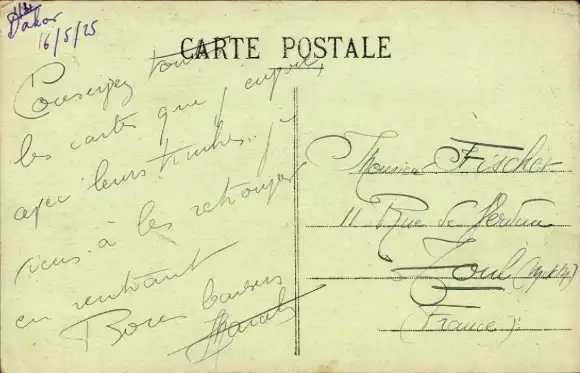 Dakar
16/5/25
CARTE POSTALE
Conservez toutes
les cartes que j'envoie,
avec leurs timbres. Je
tiens à les retrouver
en rentrant
Bons baisers
Monsieur Fischer
11 Rue de Verdun
Toul
(France)